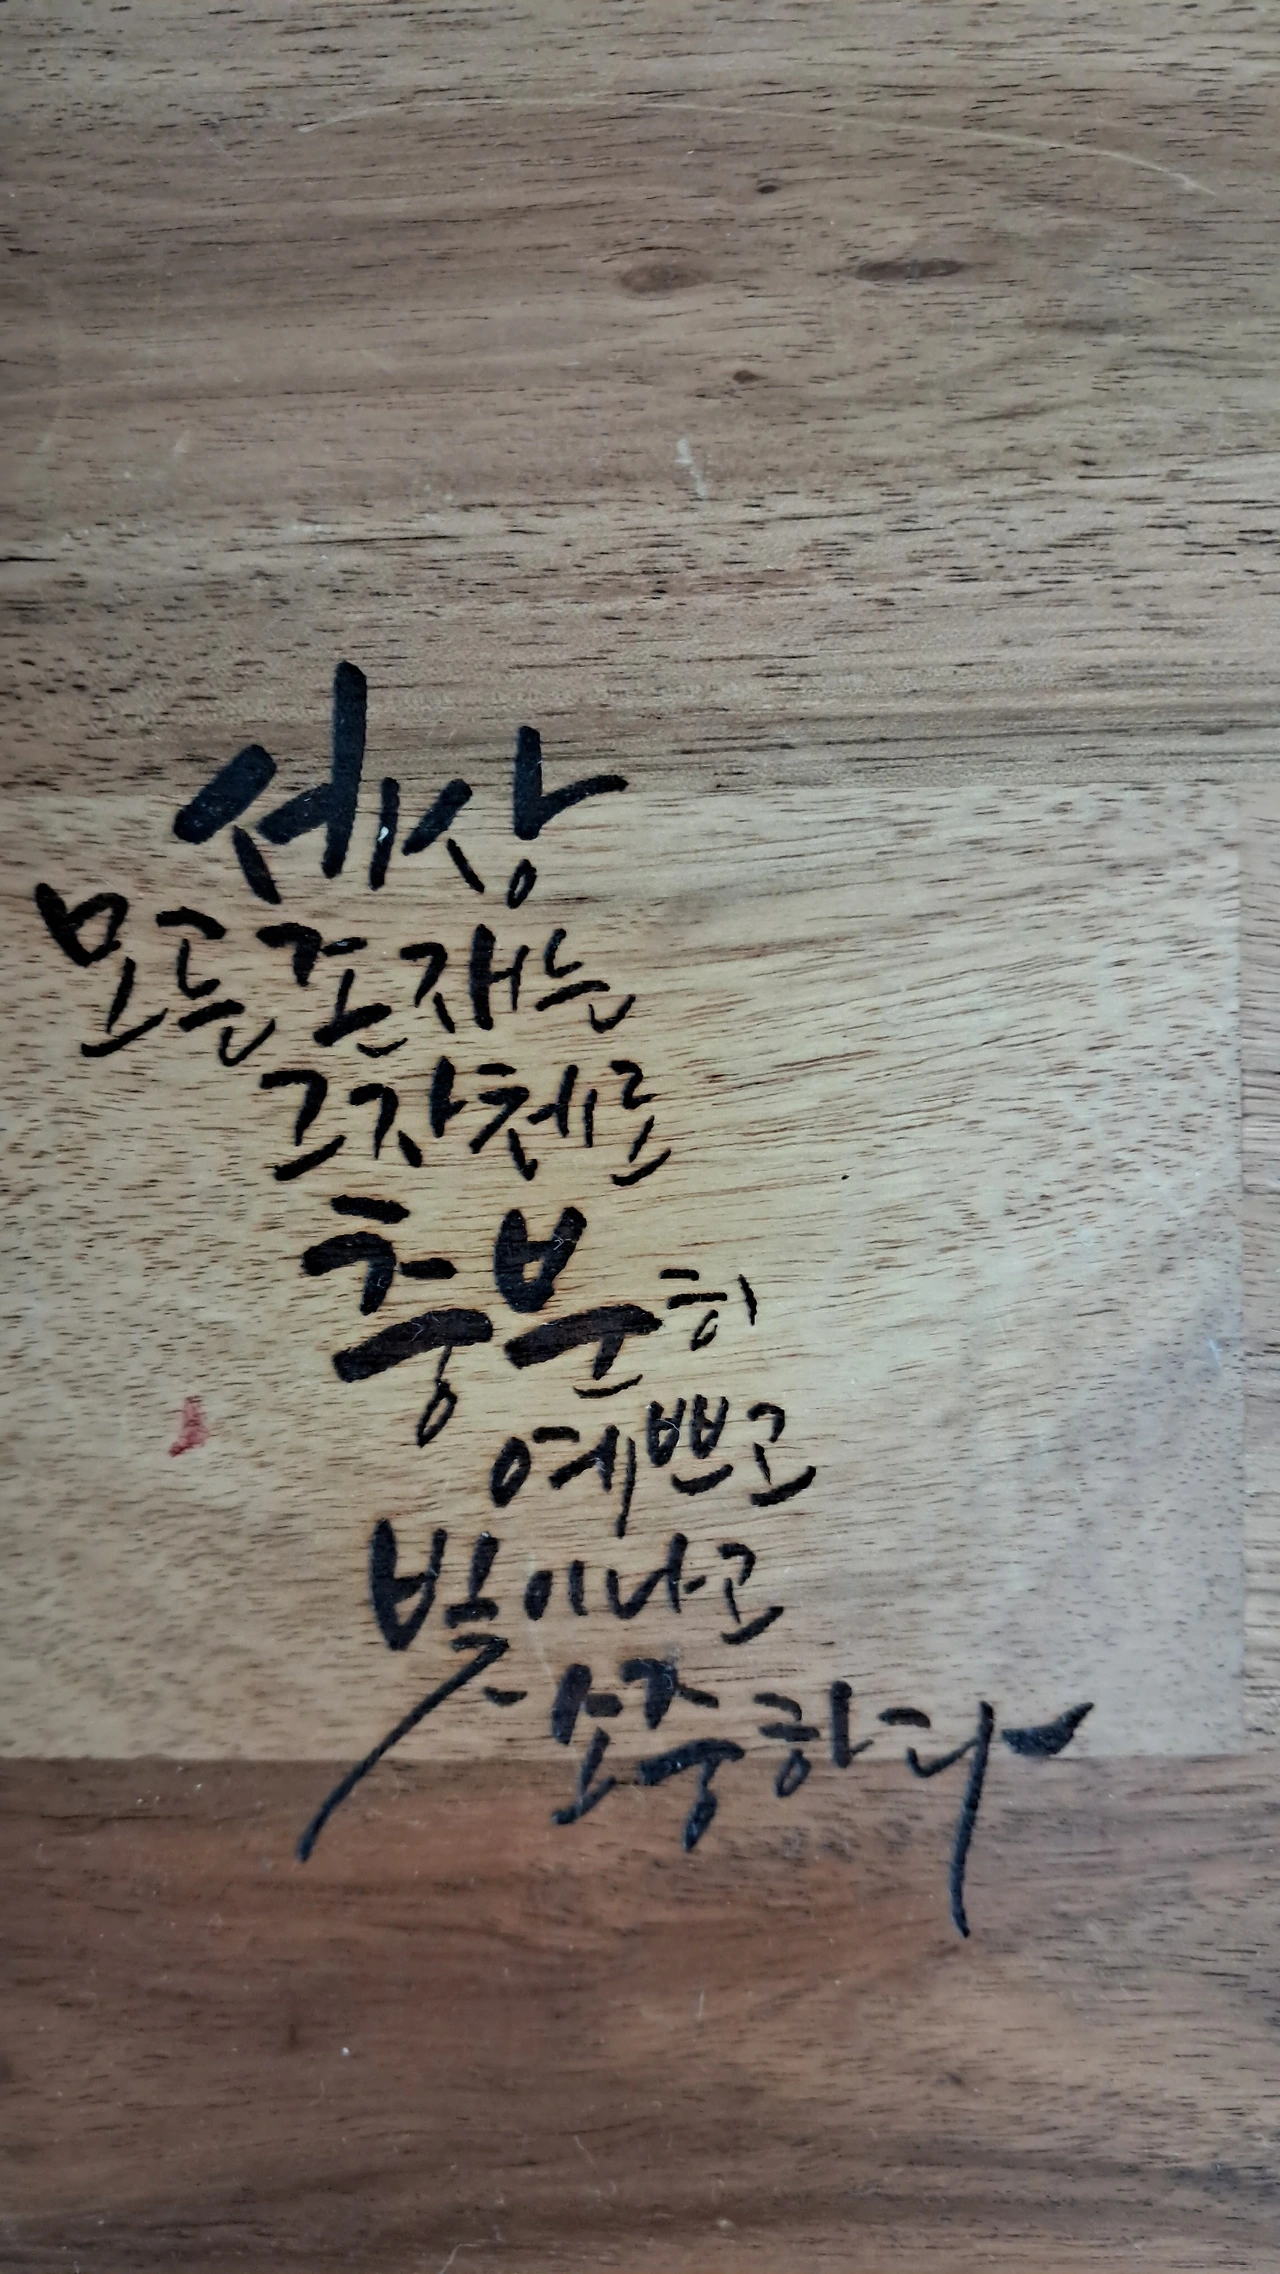 세상
모든 존재는
그 자체로
충분히
예쁘고
빛이나고
소중하다